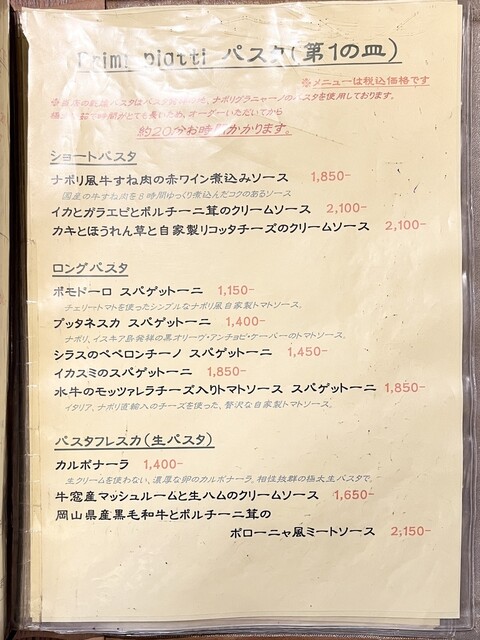 Primi piatti パスタ(第1の皿)
※メニューは税込価格です
※当店の乾燥パスタはパスタ発祥の地、ナポリグラニャーノのパスタを使用しております。
時間がとても長いため、オーダーいただいてから
約20分お時間かかります。
ショートパスタ
ナポリ風牛すね肉の赤ワイン煮込みソース 1,850-
国産の牛すね肉を8時間ゆっくり煮込んだコクのあるソース
イカとガラエビとポルチーニ茸のクリームソース 2,100-
カキとほうれん草と自家製リコッタチーズのクリームソース 2,100-
ロングパスタ
ポモドーロ スパゲットーニ 1,150-
チェリートマトを使ったシンプルなナポリ風自家製トマトソース。
プッタネスカ スパゲットーニ 1,400-
ナポリ、イスキア島発祥の黒オリーヴ・アンチョビ・ケーパーのトマトソース。
シラスのペペロンチーノ スパゲットーニ 1,450-
イカスミのスパゲットーニ 1,850-
水牛のモッツァレラチーズ入りトマトソース スパゲットーニ 1,850-
イタリア、ナポリ直輸入のチーズを使った、贅沢な自家製トマトソース。
パスタフレスカ(生パスタ)
カルボナーラ 1,400-
生クリームを使わない、濃厚な卵のカルボナーラ。相性抜群の極太生パスタで。
牛窓産マッシュルームと生ハムのクリームソース 1,650-
岡山県産黒毛和牛とポルチーニ茸の
ボローニャ風ミートソース 2,150-